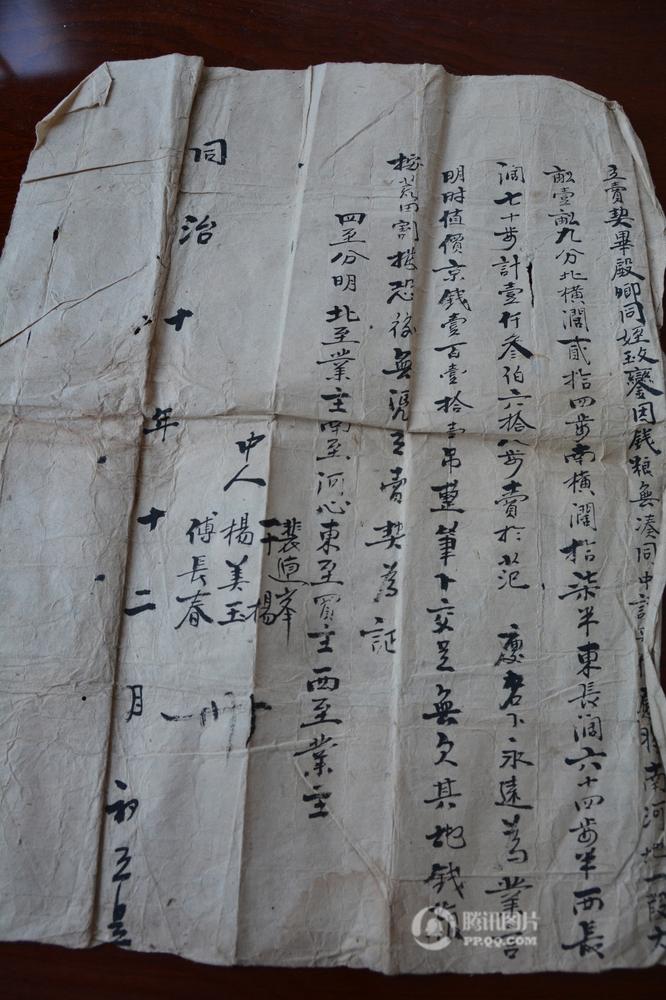 立賣契畢殿卿同姪致鑾因錢粮無凑同中說南河地一段大
畝壹畝九分北橫濶貳拾四步南橫濶拾柒半東長濶六十四步半西長
濶七十步計壹仟叁伯六拾八步賣於 慶名下永遠為業言
明時值價京錢壹百壹拾壹吊整筆下交足無欠其地錢粮
按割恐後無凴立賣契為証
四至分明北至業主南至河心東至買主西至業主
裴
楊
中人楊美玉
傅長春
同治十年十二月初五日立
腾讯图片
PP.QQ.COM